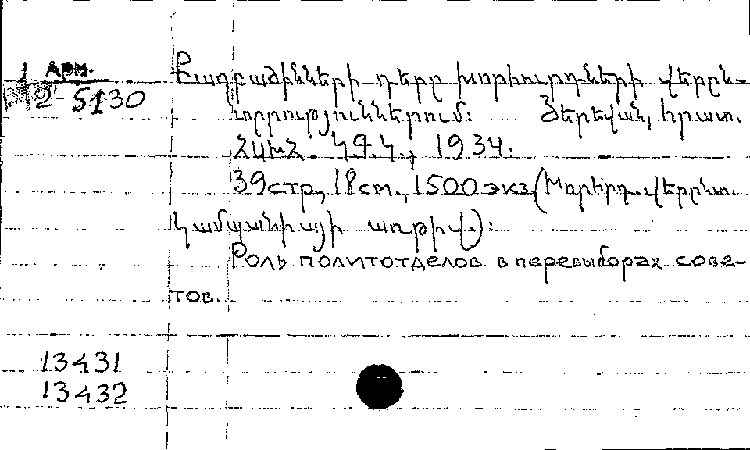 Арм.
2-5130
Քաղբաժինների դերը խորհուրդների վերըն-
տրություններում: Յերեվան, հրատ.
ՀԿԽՀ ԿԳԿ, 1934.
39 стр, 18 см., 1500 экз. (Խորհրդ. վերընտ.
կամպանիայի առթիվ):
Роль политотделов в перевыборах сове-
тов.
13431
13432